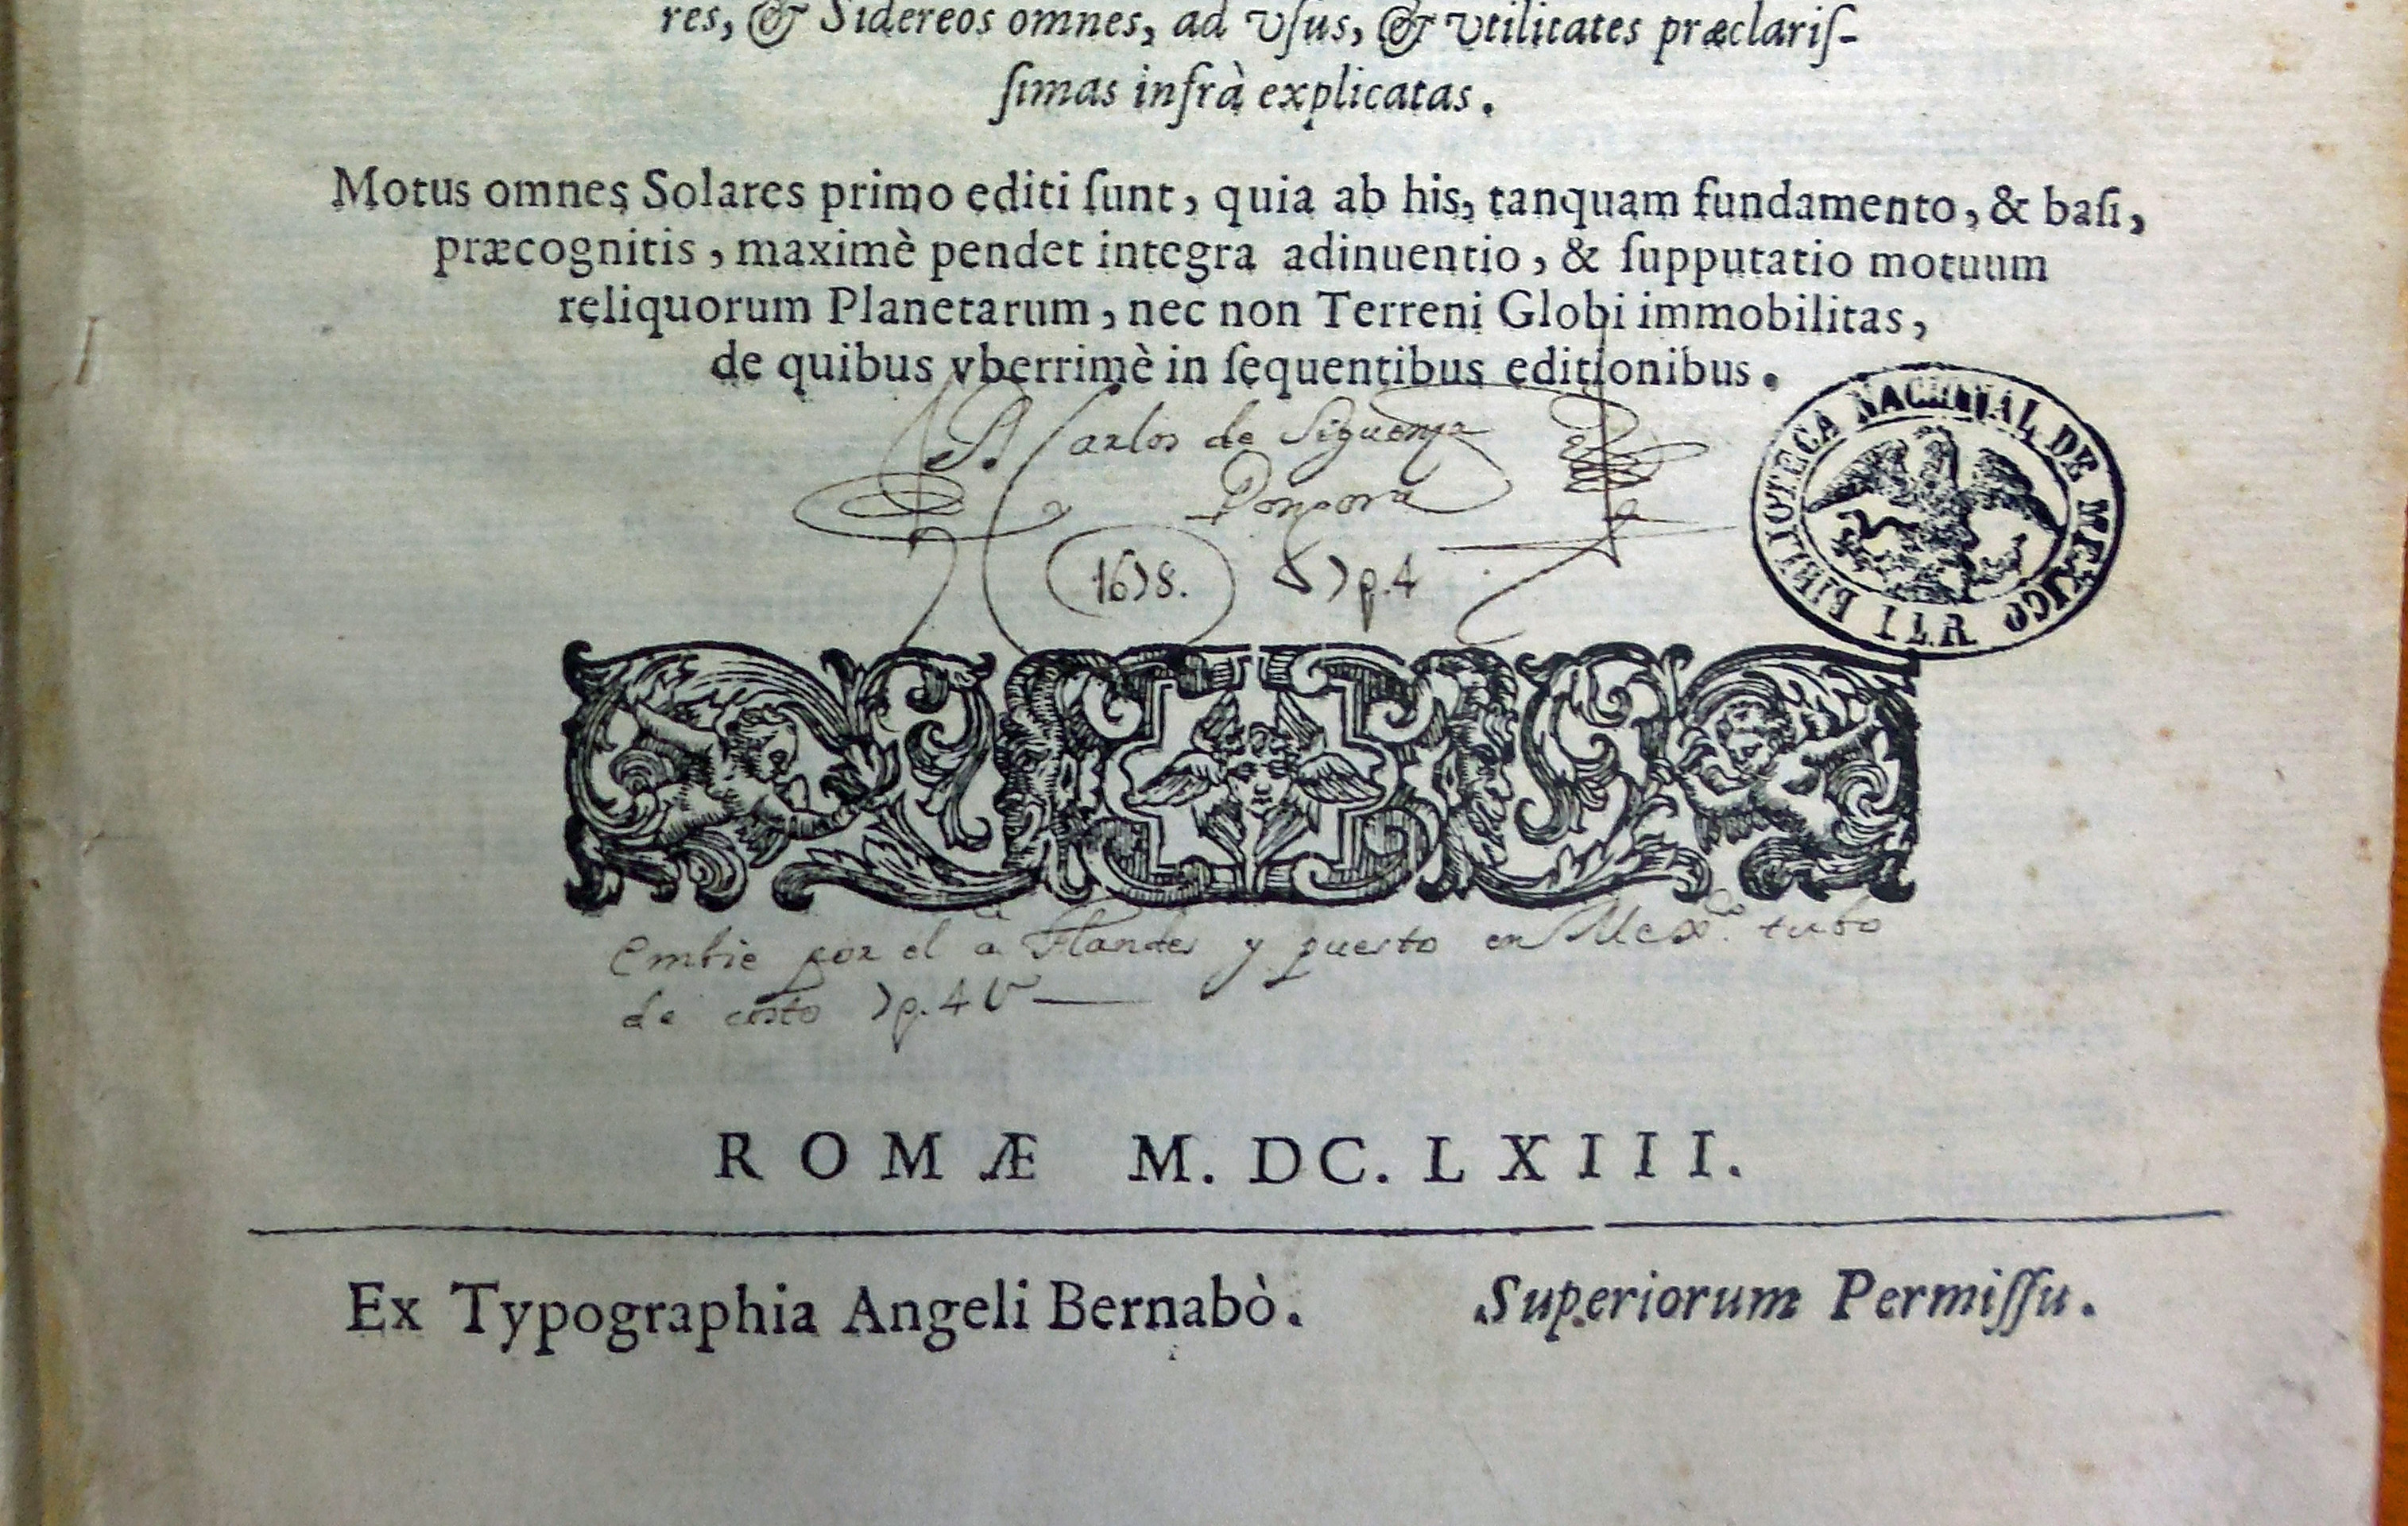 res, & Sidereos omnes, ad vſus, & vtilitates præclariſ-
ſimas infrà explicatas.
Motus omnes Solares primo editi ſunt, quia ab his, tanquam fundamento, & baſi,
præcognitis, maximè pendet integra adinuentio, & ſupputatio motuum
reliquorum Planetarum, nec non Terreni Globi immobilitas,
de quibus vberrimè in ſequentibus editionibus.
D. Carlos de Siguenza
Gongora
1678. 7p.4
BIBLIOTECA NACIONAL DE MEXICO
Embie por el a Flandes y puesto en Mexco. tubo
de costo 7p.4
ROMÆ M. DC. LXIII.
Ex Typographia Angeli Bernabò. Superiorum Permiſſu.